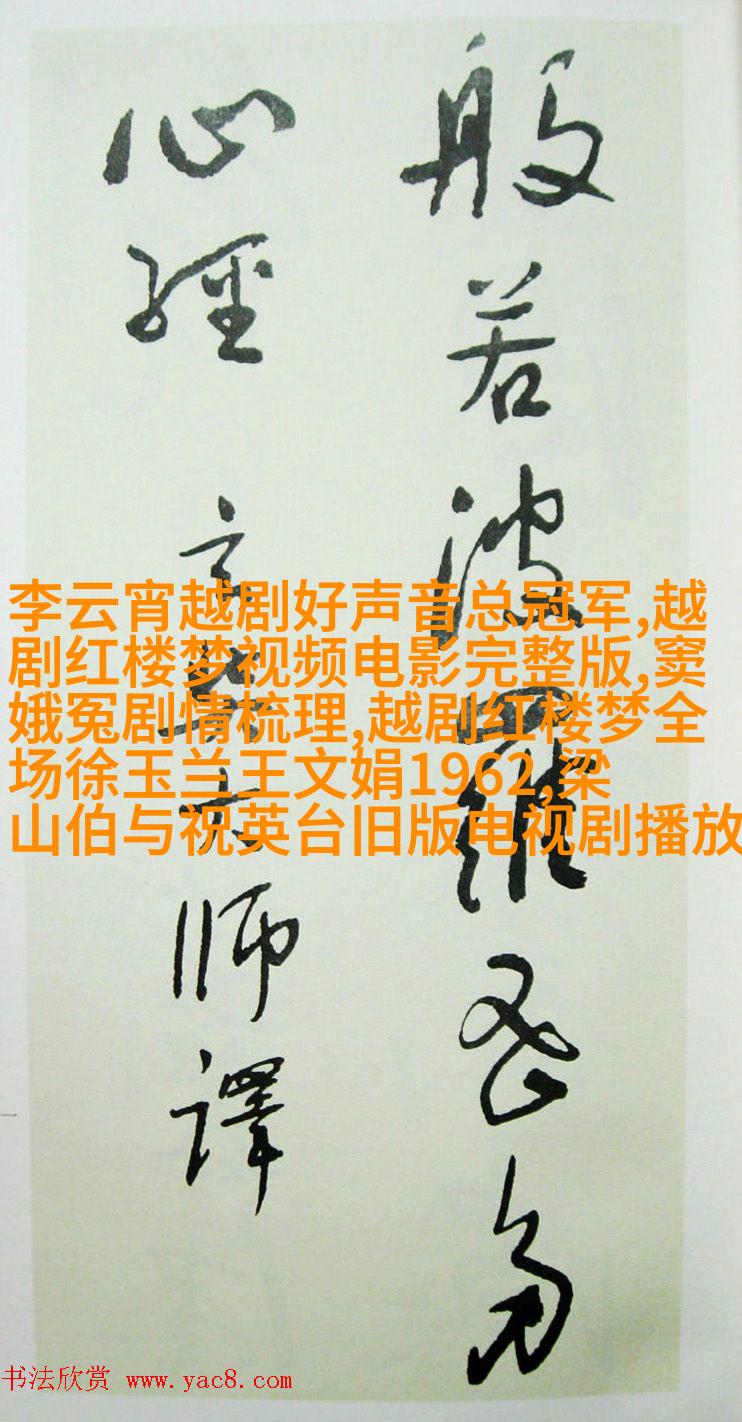 般若波羅蜜多
心經 玄奘大師譯
李云宵越剧好声音总冠军,越
剧红楼梦视频电影完整版,窦
娥冤剧情梳理,越剧红楼梦全
场徐玉兰王文娟1962,梁
山伯与祝英台旧版电视剧播放
书法欣赏 www.yac8.com